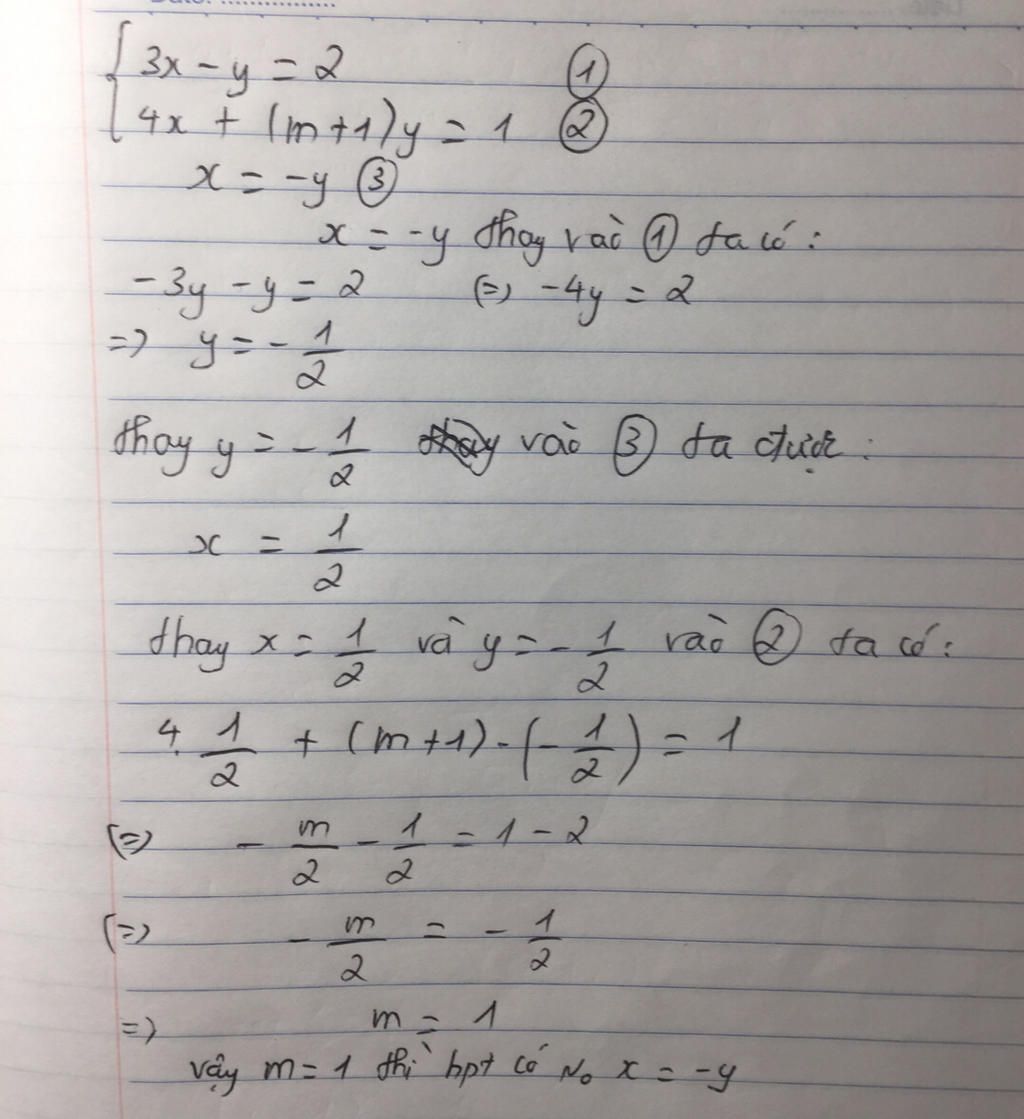 3x - y = 2 ①
4x + (m+1)y = 1 ②
x = -y ③
x = -y thay vào ① ta có :
-3y - y = 2 (=) -4y = 2
=) y = - 1/2
thay y = - 1/2 vào ③ ta được :
x = 1/2
thay x = 1/2 và y = - 1/2 vào ② ta có :
4. 1/2 + (m+1) - (- 1/2) = 1
(=) - m/2 - 1/2 = 1 - 2
(=) - m/2 = - 1/2
=) m = 1
vậy m = 1 thì hpt có No x = -y